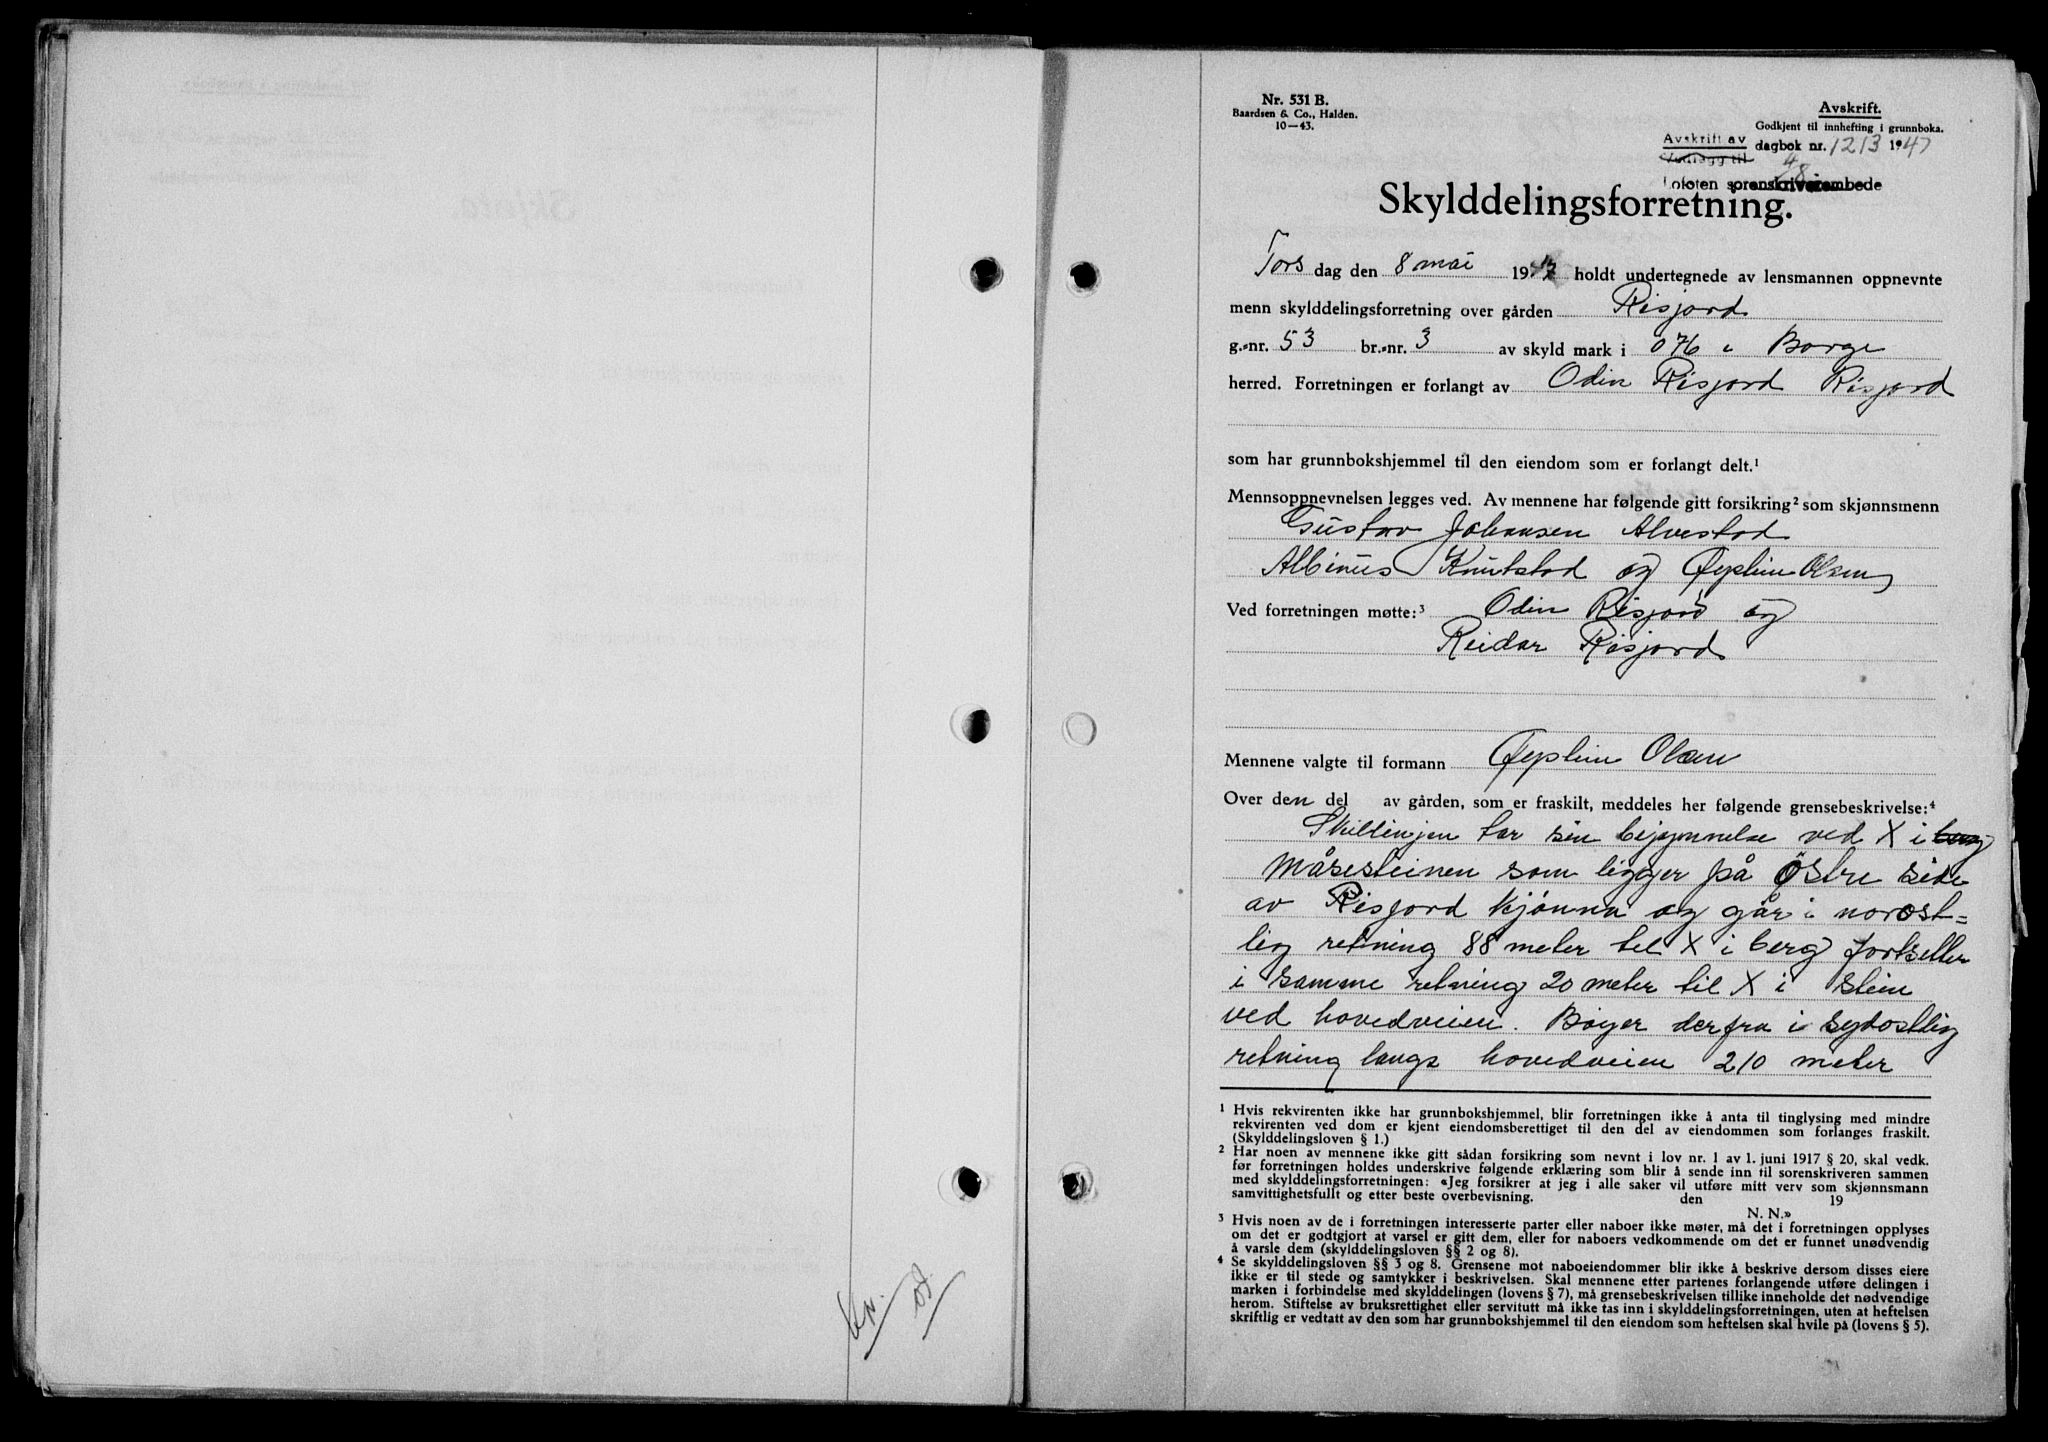 Nr. 531 B.
Baardsen & Co., Halden.
10—43.
Avskrift.
Godkjent til innhefting i grunnboka.
Avskrift av dagbok nr. 1213 1947
Vedlegg til 4/8
Lofoten sorenskriverembede
Skylddelingsforretning.
Tors dag den 8 mai 1947 holdt undertegnede av lensmannen oppnevnte
menn skylddelingsforretning over gården Risjord
g.-nr. 53 br.-nr. 3 av skyld mark i 076 i Borge
herred. Forretningen er forlangt av Odin Risjord Risjord
som har grunnbokshjemmel til den eiendom som er forlangt delt.¹
Mennsoppnevnelsen legges ved. Av mennene har følgende gitt forsikring² som skjønnsmenn
Gustav Johansen Alvestad
Albinus Knutstad og Øystein Olsen
Ved forretningen møtte:³ Odin Risjord og
Reidar Risjord
Mennene valgte til formann Øystein Olsen
Over den del av gården, som er fraskilt, meddeles her følgende grensebeskrivelse:⁴
Skillingen tar sin bejynnelse ved X i berg
Måsesteinen som ligger på östre side
av Risjord kjönna og går i norost=
lig retning 88 meter til X i berg fortsetter
i samme retning 20 meter til X i stein
ved hovedveien. Böyer derfra i sydostlig
retning langs hovedveien 210 meter
¹ Hvis rekvirenten ikke har grunnbokshjemmel, blir forretningen ikke å anta til tinglysing med mindre
rekvirenten ved dom er kjent eiendomsberettiget til den del av eiendommen som forlanges fraskilt.
(Skylddelingsloven § 1.)
² Har noen av mennene ikke gitt sådan forsikring som nevnt i lov nr. 1 av 1. juni 1917 § 20, skal vedk.
før forretningen holdes underskrive følgende erklæring som blir å sende inn til sorenskriveren sammen
med skylddelingsforretningen: «Jeg forsikrer at jeg i alle saker vil utføre mitt verv som skjønnsmann
samvittighetsfullt og etter beste overbevisning. den 19
N. N.»
³ Hvis noen av de i forretningen interesserte parter eller naboer ikke møter, må det i forretningen opplyses
om det er godtgjort at varsel er gitt dem, eller for naboers vedkommende om det er funnet unødvendig
å varsle dem (skylddelingsloven §§ 2 og 8).
⁴ Se skylddelingsloven §§ 3 og 8. Grensene mot naboeiendommer blir ikke å beskrive dersom disses eiere
ikke er til stede og samtykker i beskrivelsen. Skal mennene etter partenes forlangende utføre delingen i
marken i forbindelse med skylddelingen (lovens § 7), må grensebeskrivelsen tillike inneholde det nødvendige
herom. Stiftelse av bruksrettighet eller servitutt må ikke tas inn i skylddelingsforretningen, uten at heftelsen
skriftlig er vedtatt av den som har grunnbokshjemmel til den eiendom som heftelsen skal hvile på (lovens § 5).